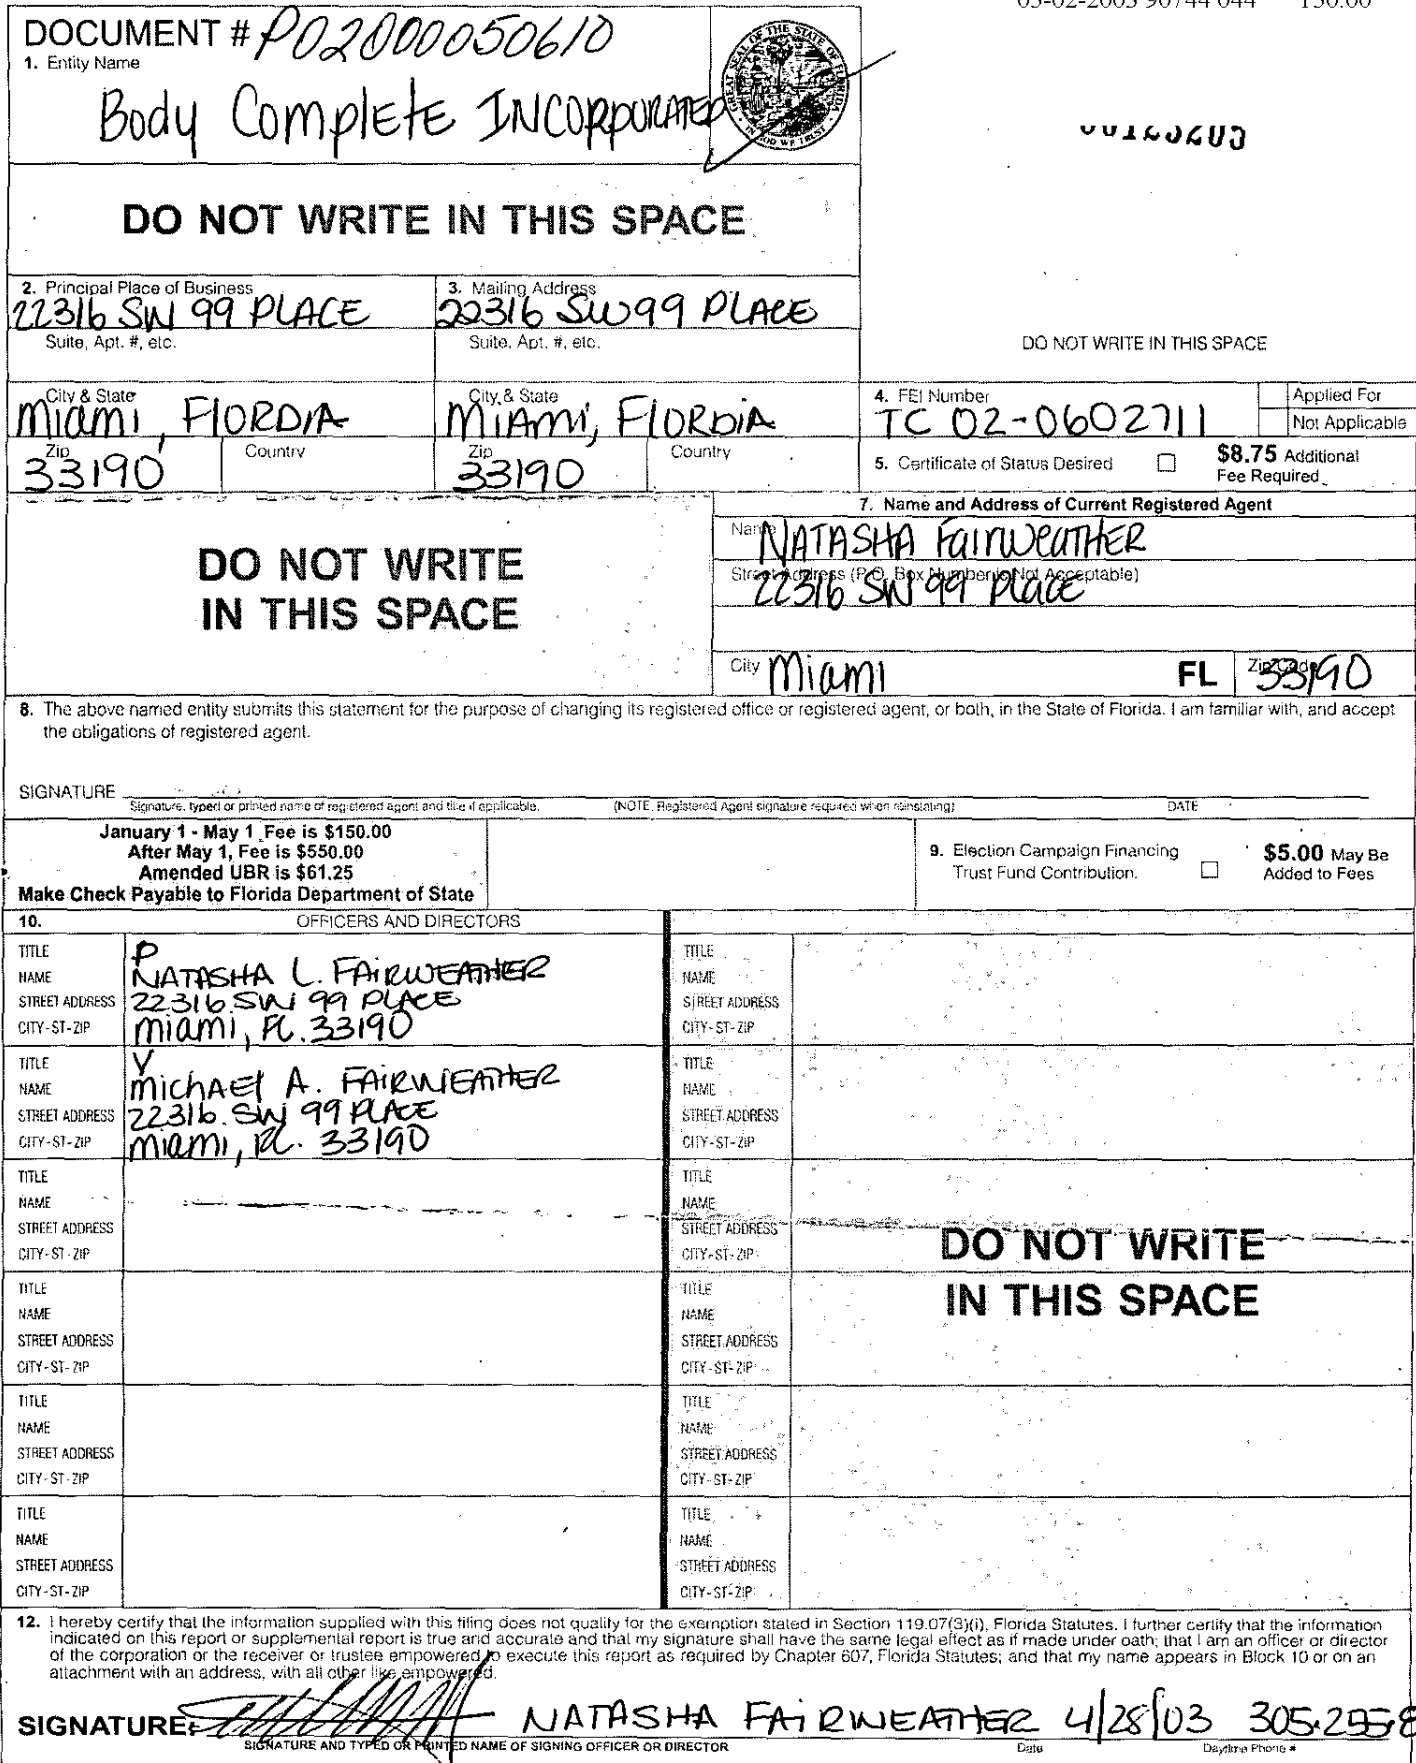 150.00
DOCUMENT # P02000050610
1. Entity Name
Body Complete INCORPORATED
GREAT SEAL OF THE STATE OF FLORIDA
IN GOD WE TRUST
DO NOT WRITE IN THIS SPACE
2. Principal Place of Business
22316 SW 99 PLACE
Suite, Apt. #, etc.
3. Mailing Address
22316 SW 99 PLACE
Suite. Apt. #, etc.
DO NOT WRITE IN THIS SPACE
City & State
Miami, FlORDIA
City & State
MIAMI, FlORDIA
4. FEI Number
TC 02-0602711
Applied For
Not Applicable
Zip
33190
Country
Zip
33190
Country
5. Certificate of Status Desired
$8.75 Additional
Fee Required
DO NOT WRITE
IN THIS SPACE
7. Name and Address of Current Registered Agent
Name NATASHA FairweATHER
Street Address (P.O. Box Number is Not Acceptable)
22316 SW 99 Place
City Miami FL Zip Code 33190
8. The above named entity submits this statement for the purpose of changing its registered office or registered agent, or both, in the State of Florida. I am familiar with, and accept
the obligations of registered agent.
SIGNATURE
Signature, typed or printed name of registered agent and title if applicable. (NOTE. Registered Agent signature required when reinstating) DATE
January 1 - May 1 Fee is $150.00
After May 1, Fee is $550.00
Amended UBR is $61.25
Make Check Payable to Florida Department of State
9. Election Campaign Financing
Trust Fund Contribution.
$5.00 May Be
Added to Fees
10. OFFICERS AND DIRECTORS
TITLE P
NAME NATASHA L. FAIRWEATHER
STREET ADDRESS 22316 SW 99 PLACE
CITY-ST-ZIP Miami, FL. 33190
TITLE
NAME
STREET ADDRESS
CITY-ST-ZIP
TITLE V
NAME MichAEl A. FAIRWEATHER
STREET ADDRESS 22316. SW 99 PLACE
CITY-ST-ZIP Miami, FL. 33190
TITLE
NAME
STREET ADDRESS
CITY-ST-ZIP
TITLE
NAME
STREET ADDRESS
CITY-ST-ZIP
TITLE
NAME
STREET ADDRESS
CITY-ST-ZIP
DO NOT WRITE
IN THIS SPACE
TITLE
NAME
STREET ADDRESS
CITY-ST-ZIP
TITLE
NAME
STREET ADDRESS
CITY-ST-ZIP
TITLE
NAME
STREET ADDRESS
CITY-ST-ZIP
TITLE
NAME
STREET ADDRESS
CITY-ST-ZIP
TITLE
NAME
STREET ADDRESS
CITY-ST-ZIP
TITLE
NAME
STREET ADDRESS
CITY-ST-ZIP
12. I hereby certify that the information supplied with this filing does not qualify for the exemption stated in Section 119.07(3)(i), Florida Statutes. I further certify that the information
indicated on this report or supplemental report is true and accurate and that my signature shall have the same legal effect as if made under oath; that I am an officer or director
of the corporation or the receiver or trustee empowered to execute this report as required by Chapter 607, Florida Statutes; and that my name appears in Block 10 or on an
attachment with an address, with all other like empowered.
SIGNATURE: NATASHA FAIRWEATHER 4/28/03 305-255-8
SIGNATURE AND TYPED OR PRINTED NAME OF SIGNING OFFICER OR DIRECTOR Date Daytime Phone #